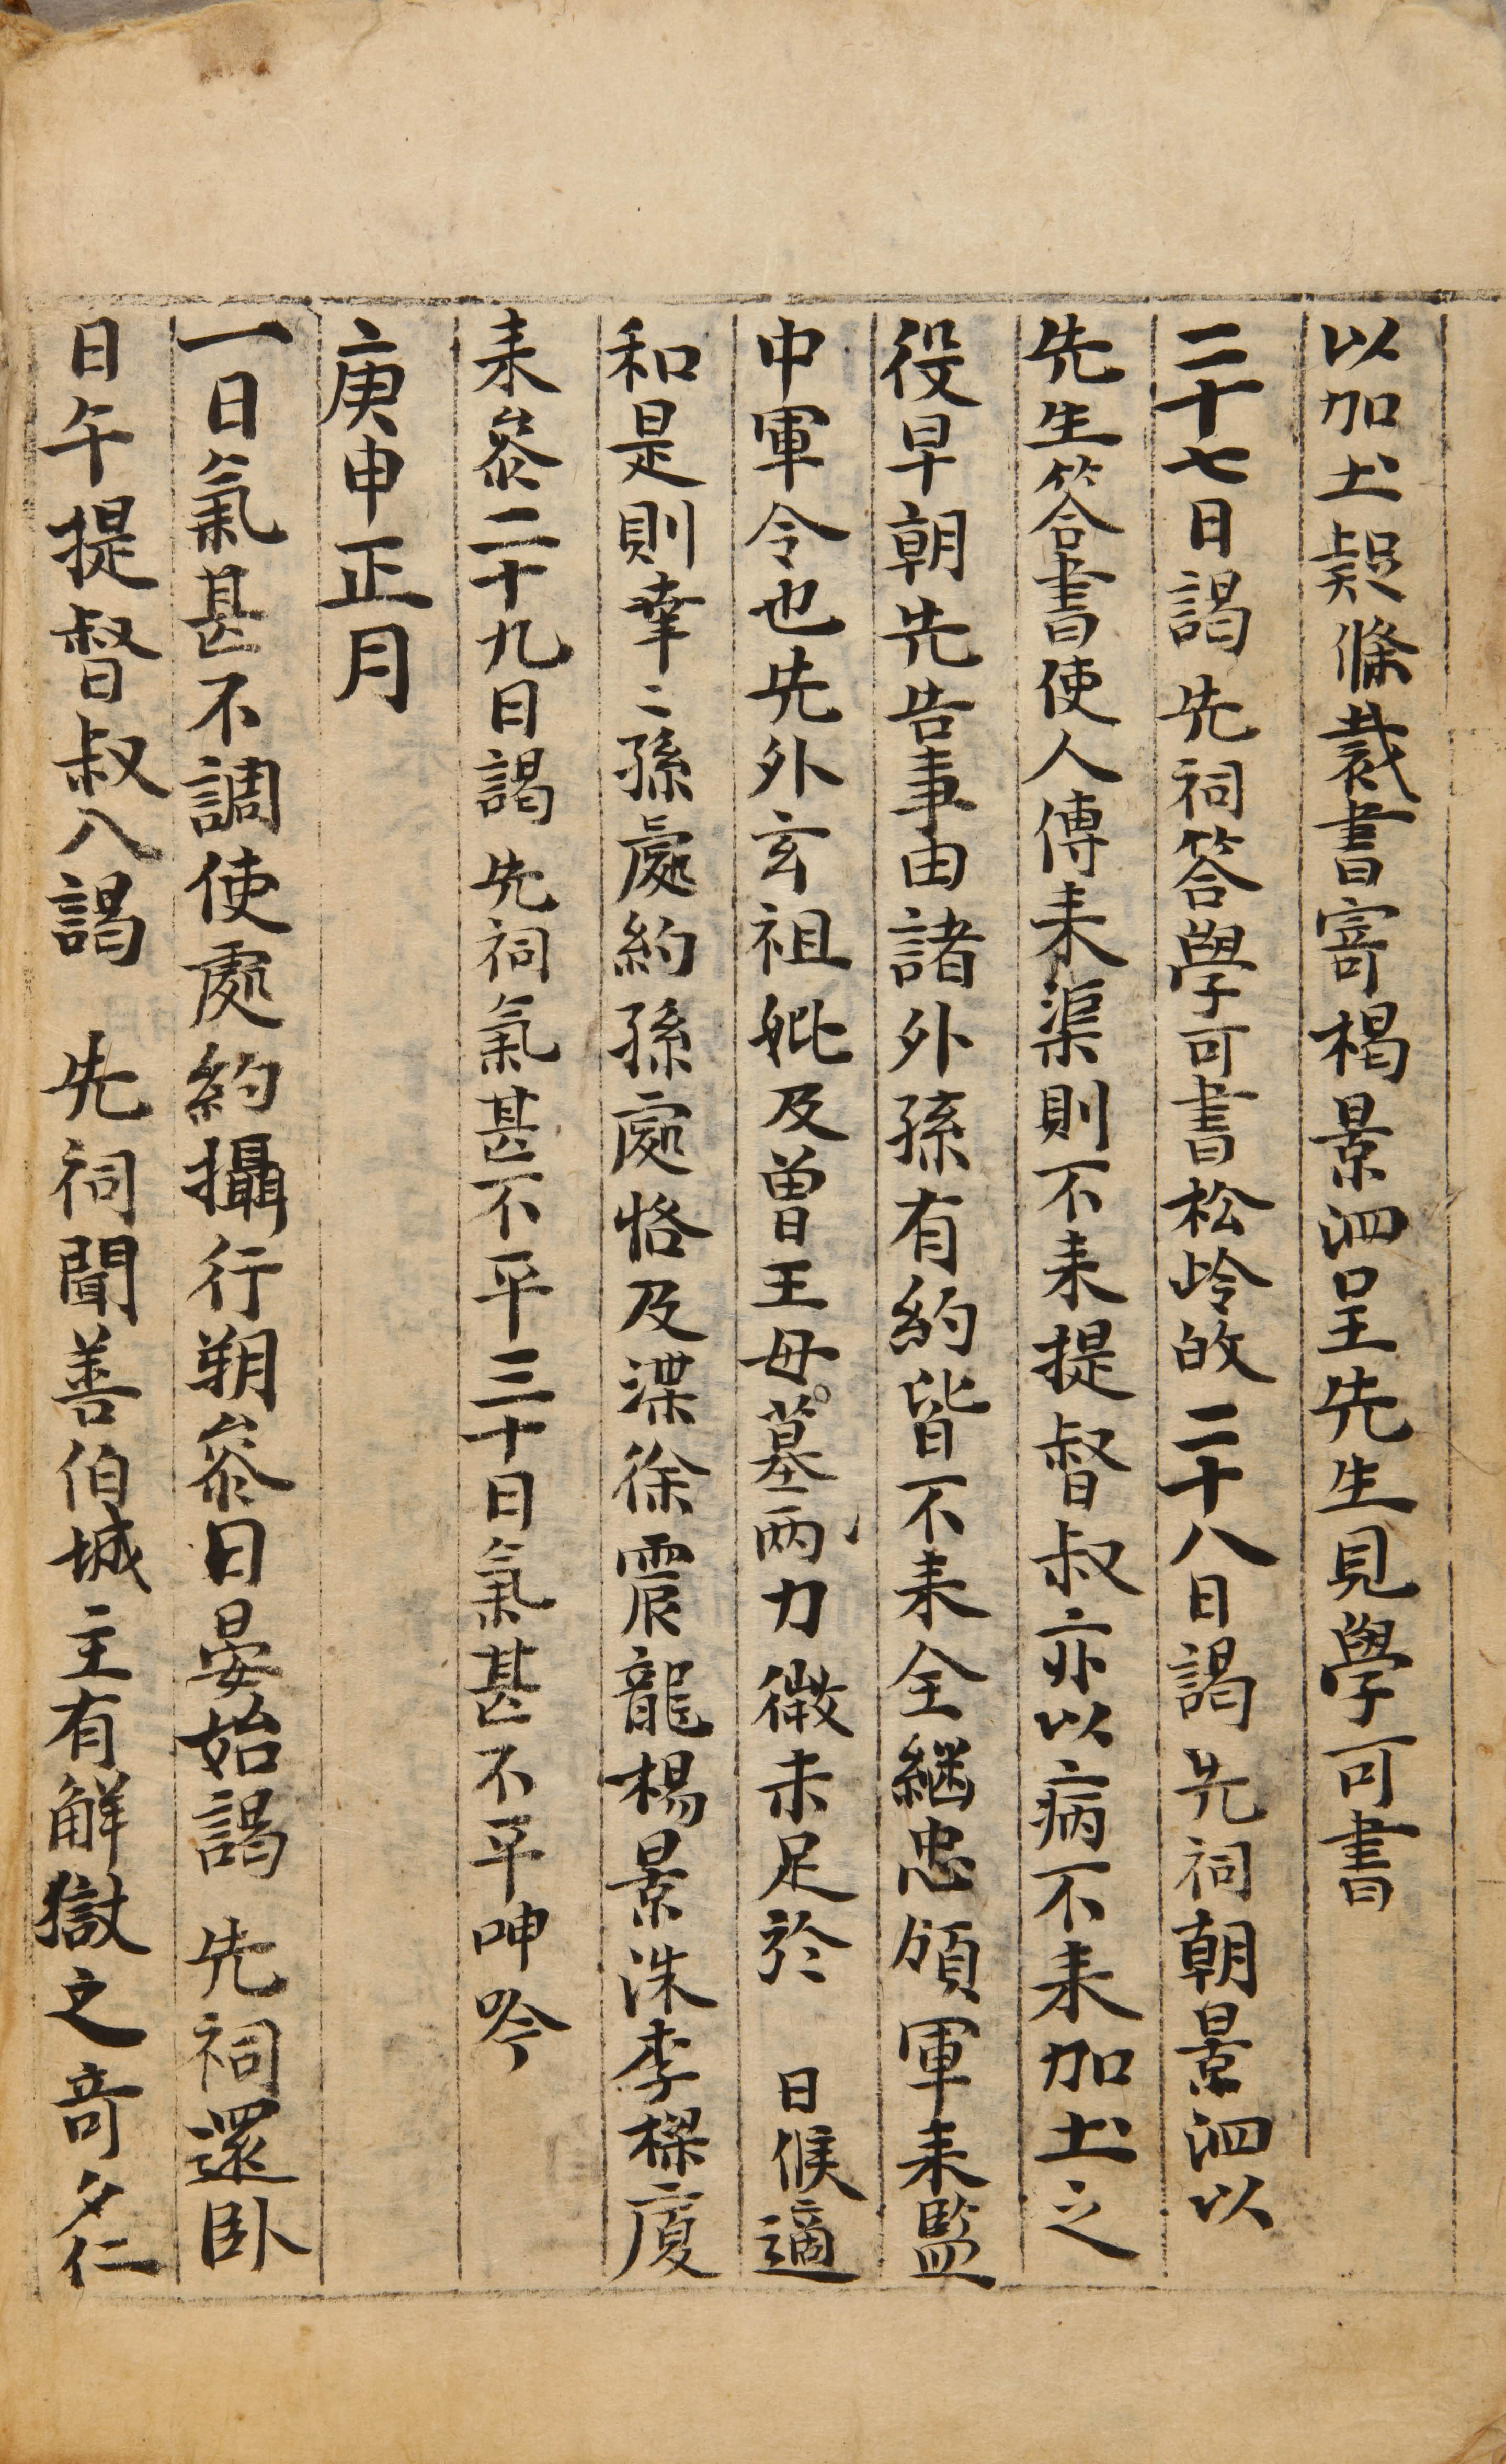 以加土疑條裁書寄楊景泗呈先生見學可書
二十七日謁 先祠答學可書松岭的 二十八日謁 先祠朝景泗以
先生答書使人傳来渠則不来提督叔亦以病不来加土之
役早朝先告事由諸外孫有約皆不来全繼忠領軍来監
中軍令也先外玄祖妣及曽王母墓两力微未足於 日候適
和是則幸〻孫處約孫處恪及渫徐震龍楊景洙李樑廈
来叅二十九日謁 先祠氣甚不平三十日氣甚不平呻吟
庚申正月
一日氣甚不調使處約攝行朔叅日晏始謁 先祠還卧
日午提督叔入謁 先祠聞善伯城主有解獄之竒夕仁